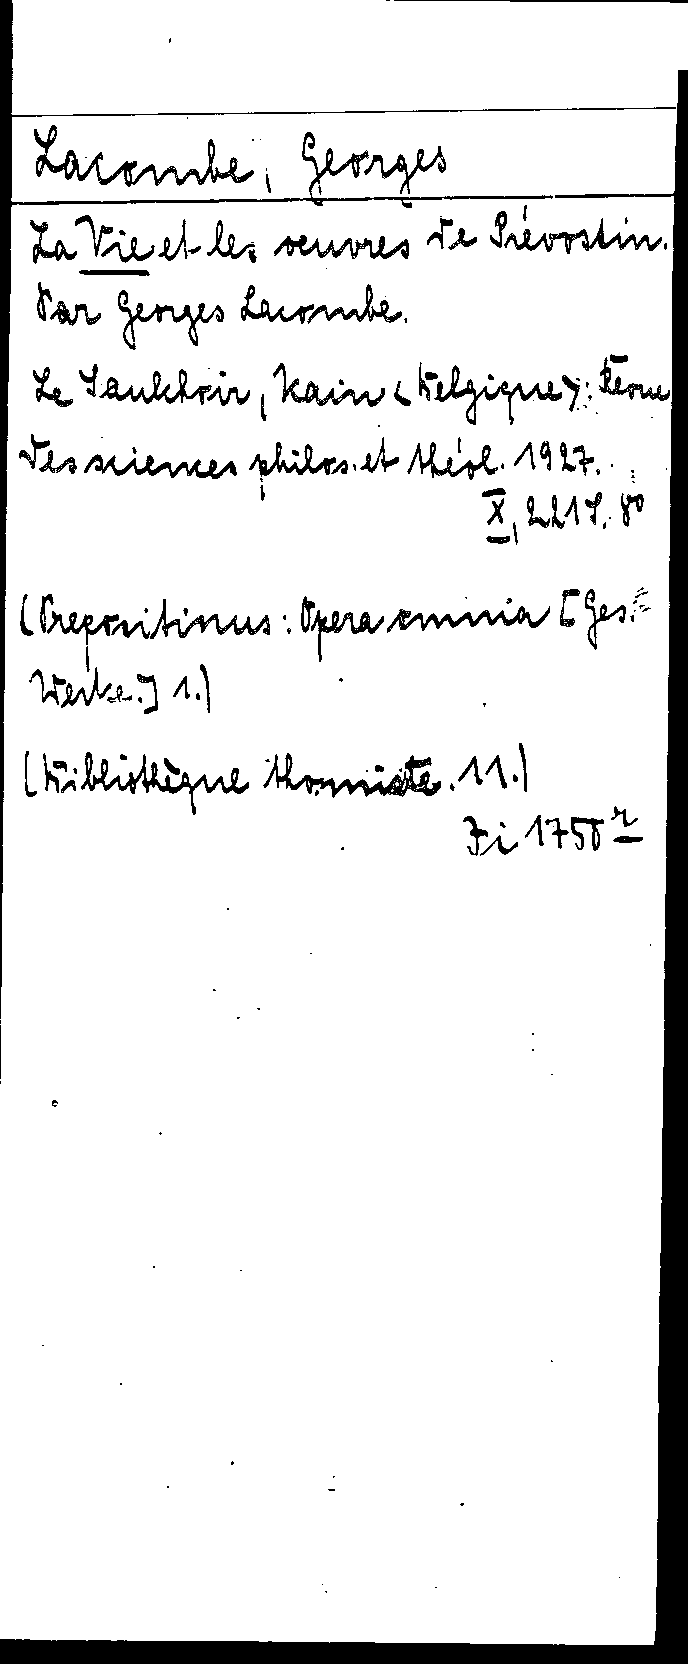 Lacombe, Georges
La Vie et les oeuvres de Prévostin.
Par Georges Lacombe.
Le Saulchoir, Kain (Belgique): Revue
des sciences philos. et théol. 1927.
X, 221 S. 8°
(Prepositinus: Opera omnia [Ges.
Werke.] 1.)
(Bibliothèque thomiste. 11.)
Zi 1750 r